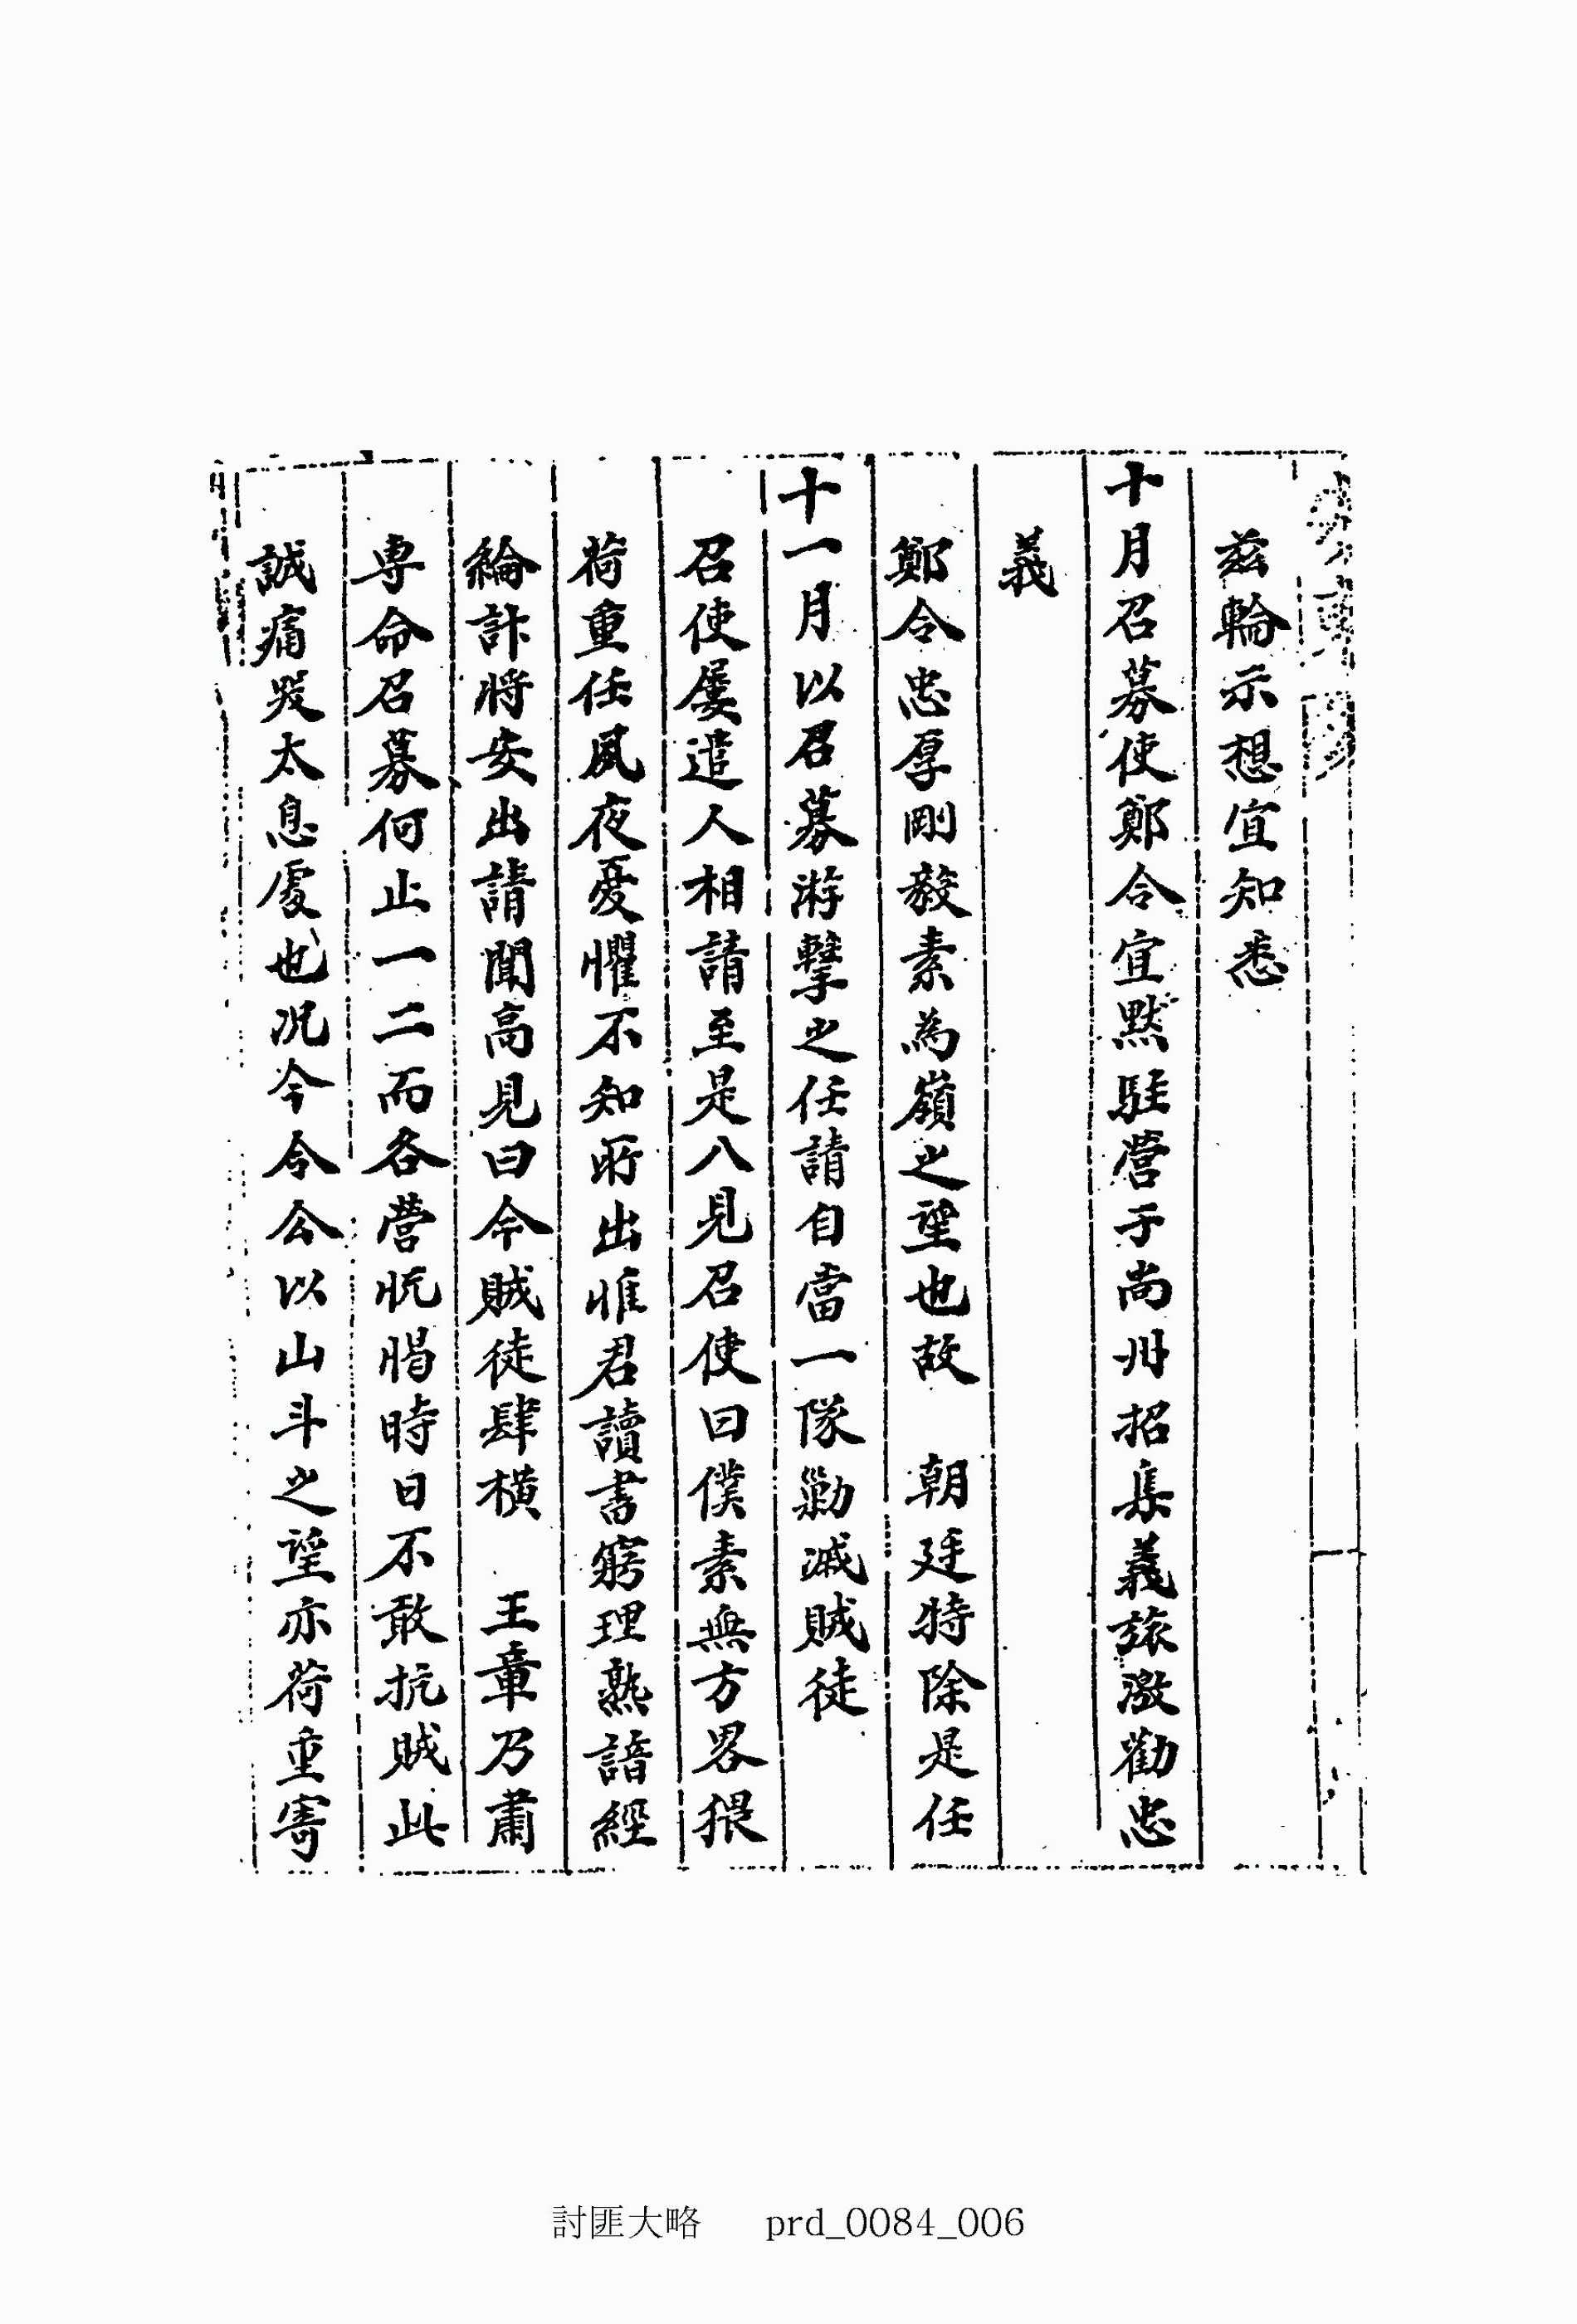 兹輪示想宜知悉
十月召募使鄭令宜黙駐營于尚州招集義旅激勸忠
義
鄭令忠厚剛毅素為嶺之望也故 朝廷特除是任
十一月以召募游擊之任請自當一隊勦滅賊徒
召使屢遣人相請至是入見召使曰僕素無方畧猥
荷重任夙夜憂懼不知所出惟君讀書窮理熟諳經
綸計將安出請聞高見曰今賊徒肆橫 王章乃肅
專命召募何止一二而各營忨愒時日不敢抗賊此
誠痛哭太息處也况今令公以山斗之望亦荷重寄
討匪大略 prd_0084_006